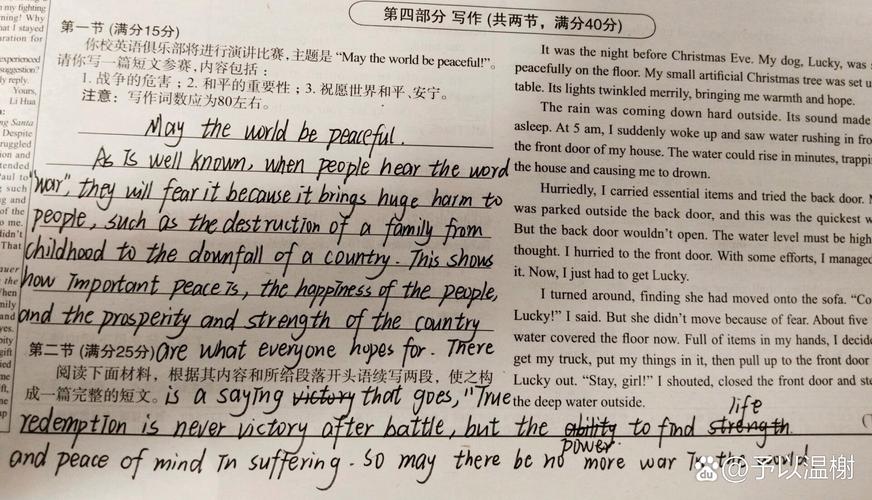 my fighting
ning! Why
hat I stayed
aration for
experienced
suggestion?
ly reply.
Yours,
Li Hua
ng Santa
Despite
ruggled
ion and
tended
Paul to
such
g and
of the
o me.
didn't
That
auer
the
When
mily
and
yes.
pity
gift
ied
me
ft,
第四部分 写作 (共两节，满分40分)
第一节 (满分15分)
你校英语俱乐部将进行演讲比赛，主题是 “May the world be peaceful!”。
请你写一篇短文参赛，内容包括：
1. 战争的危害；2. 和平的重要性；3. 祝愿世界和平、安宁。
注意：写作词数应为80左右。
May the world be peaceful.
As is well known, when people hear the word
"war", they will fear it because it brings huge harm to
people, such as the destruction of a family from
childhood to the downfall of a country. This shows
how important peace is, the happiness of the people,
and the prosperity and strength of the country
第二节 (满分25分) are what everyone hopes for. There
阅读下面材料，根据其内容和所给段落开头语续写两段，使之构
成一篇完整的短文。 is a saying victory that goes, "True
redemption is never victory after battle, but the ability power to find strength life
and peace of mind in suffering. So may there be no more war in the world
It was the night before Christmas Eve. My dog, Lucky, was
peacefully on the floor. My small artificial Christmas tree was set u
table. Its lights twinkled merrily, bringing me warmth and hope.
The rain was coming down hard outside. Its sound made
asleep. At 5 am, I suddenly woke up and saw water rushing in fro
the front door of my house. The water could rise in minutes, trappi
the house and causing me to drown.
Hurriedly, I carried essential items and tried the back door. M
was parked outside the back door, and this was the quickest w
But the back door wouldn't open. The water level must be high
thought. I hurried to the front door. With some efforts, I managed
it. Now, I just had to get Lucky.
I turned around, finding she had moved onto the sofa. “Co
Lucky!” I said. But she didn't move because of fear. About five
water covered the floor now. Full of items in my hands, I decide
get my truck, put my things in it, then pull up to the front door
Lucky out. “Stay, girl!” I shouted, closed the front door and ste
the deep water outside.
Bai du @予以温榭